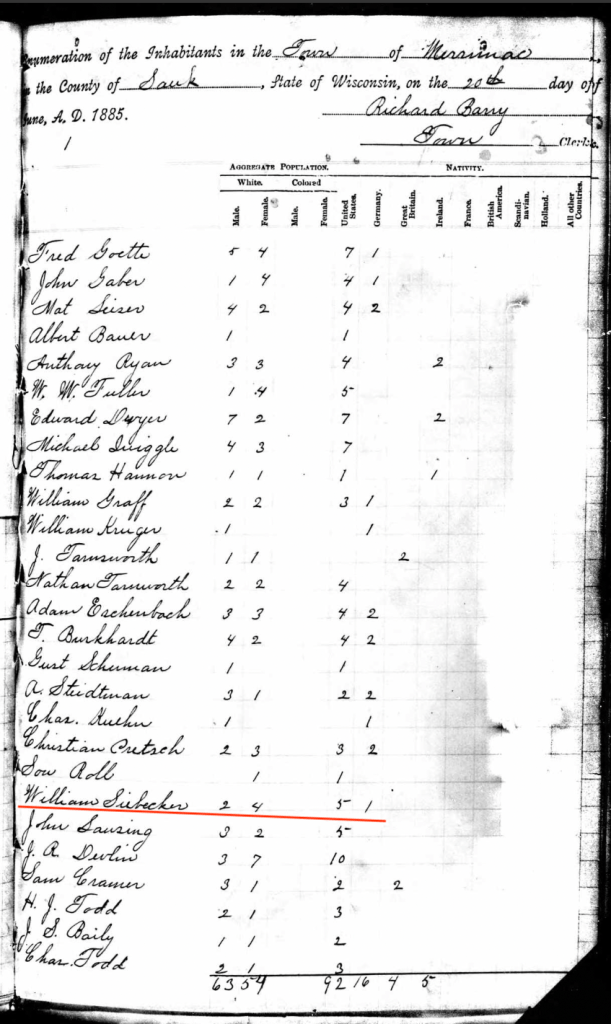 Enumeration of the Inhabitants in the Town of Merrimac
in the County of Sauk, State of Wisconsin, on the 20th day of
June, A. D. 1885.
Richard Barry
1
Town Clerk
AGGREGATE POPULATION. NATIVITY.
White. Colored
Male. Female. Male. Female. United States. Germany. Great Britain. Ireland. France. British America. Scandinavian. Holland. All other Countries.
Fred Goette 5 4 7 1
John Gaber 1 4 4 1
Mat Seiser 4 2 4 2
Albert Bauer 1 1
Anthony Ryan 3 3 4 2
W. W. Fuller 1 4 5
Edward Dwyer 7 2 7 2
Michael Quiggle 4 3 7
Thomas Hannon 1 1 1 1
William Graff 2 2 3 1
William Kruger 1 1
J. Farnsworth 1 1 2
Nathan Farnworth 2 2 4
Adam Eschenbach 3 3 4 2
F. Burkhardt 4 2 4 2
Gust Schuman 1 1
A. Steidtman 3 1 2 2
Chas. Kuehn 1 1
Christian Pretsch 2 3 3 2
Roll 1 1
William Siebecker 2 4 5 1
John Sausing 3 2 5
J. R. Devlin 3 7 10
Sam Cramer 3 1 2 2
H. J. Todd 2 1 3
J. S. Baily 1 1 2
Chas. Todd 2 1 3
63 54 92 16 4 5